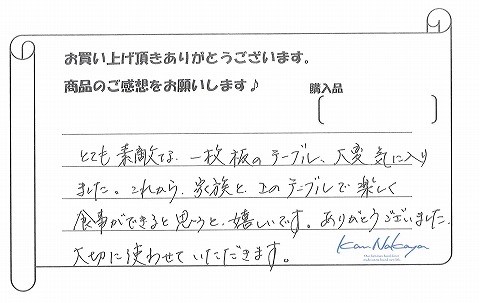 お買い上げ頂きありがとうございます。
商品のご感想をお願いします♪
購入品
とても素敵な、一枚板のテーブル、大変気に入り
ました。これから、家族と、このテーブルで楽しく
食事ができると思うと、嬉しいです。ありがとうございました。
大切に使わせていただきます。
Kan Nakaya